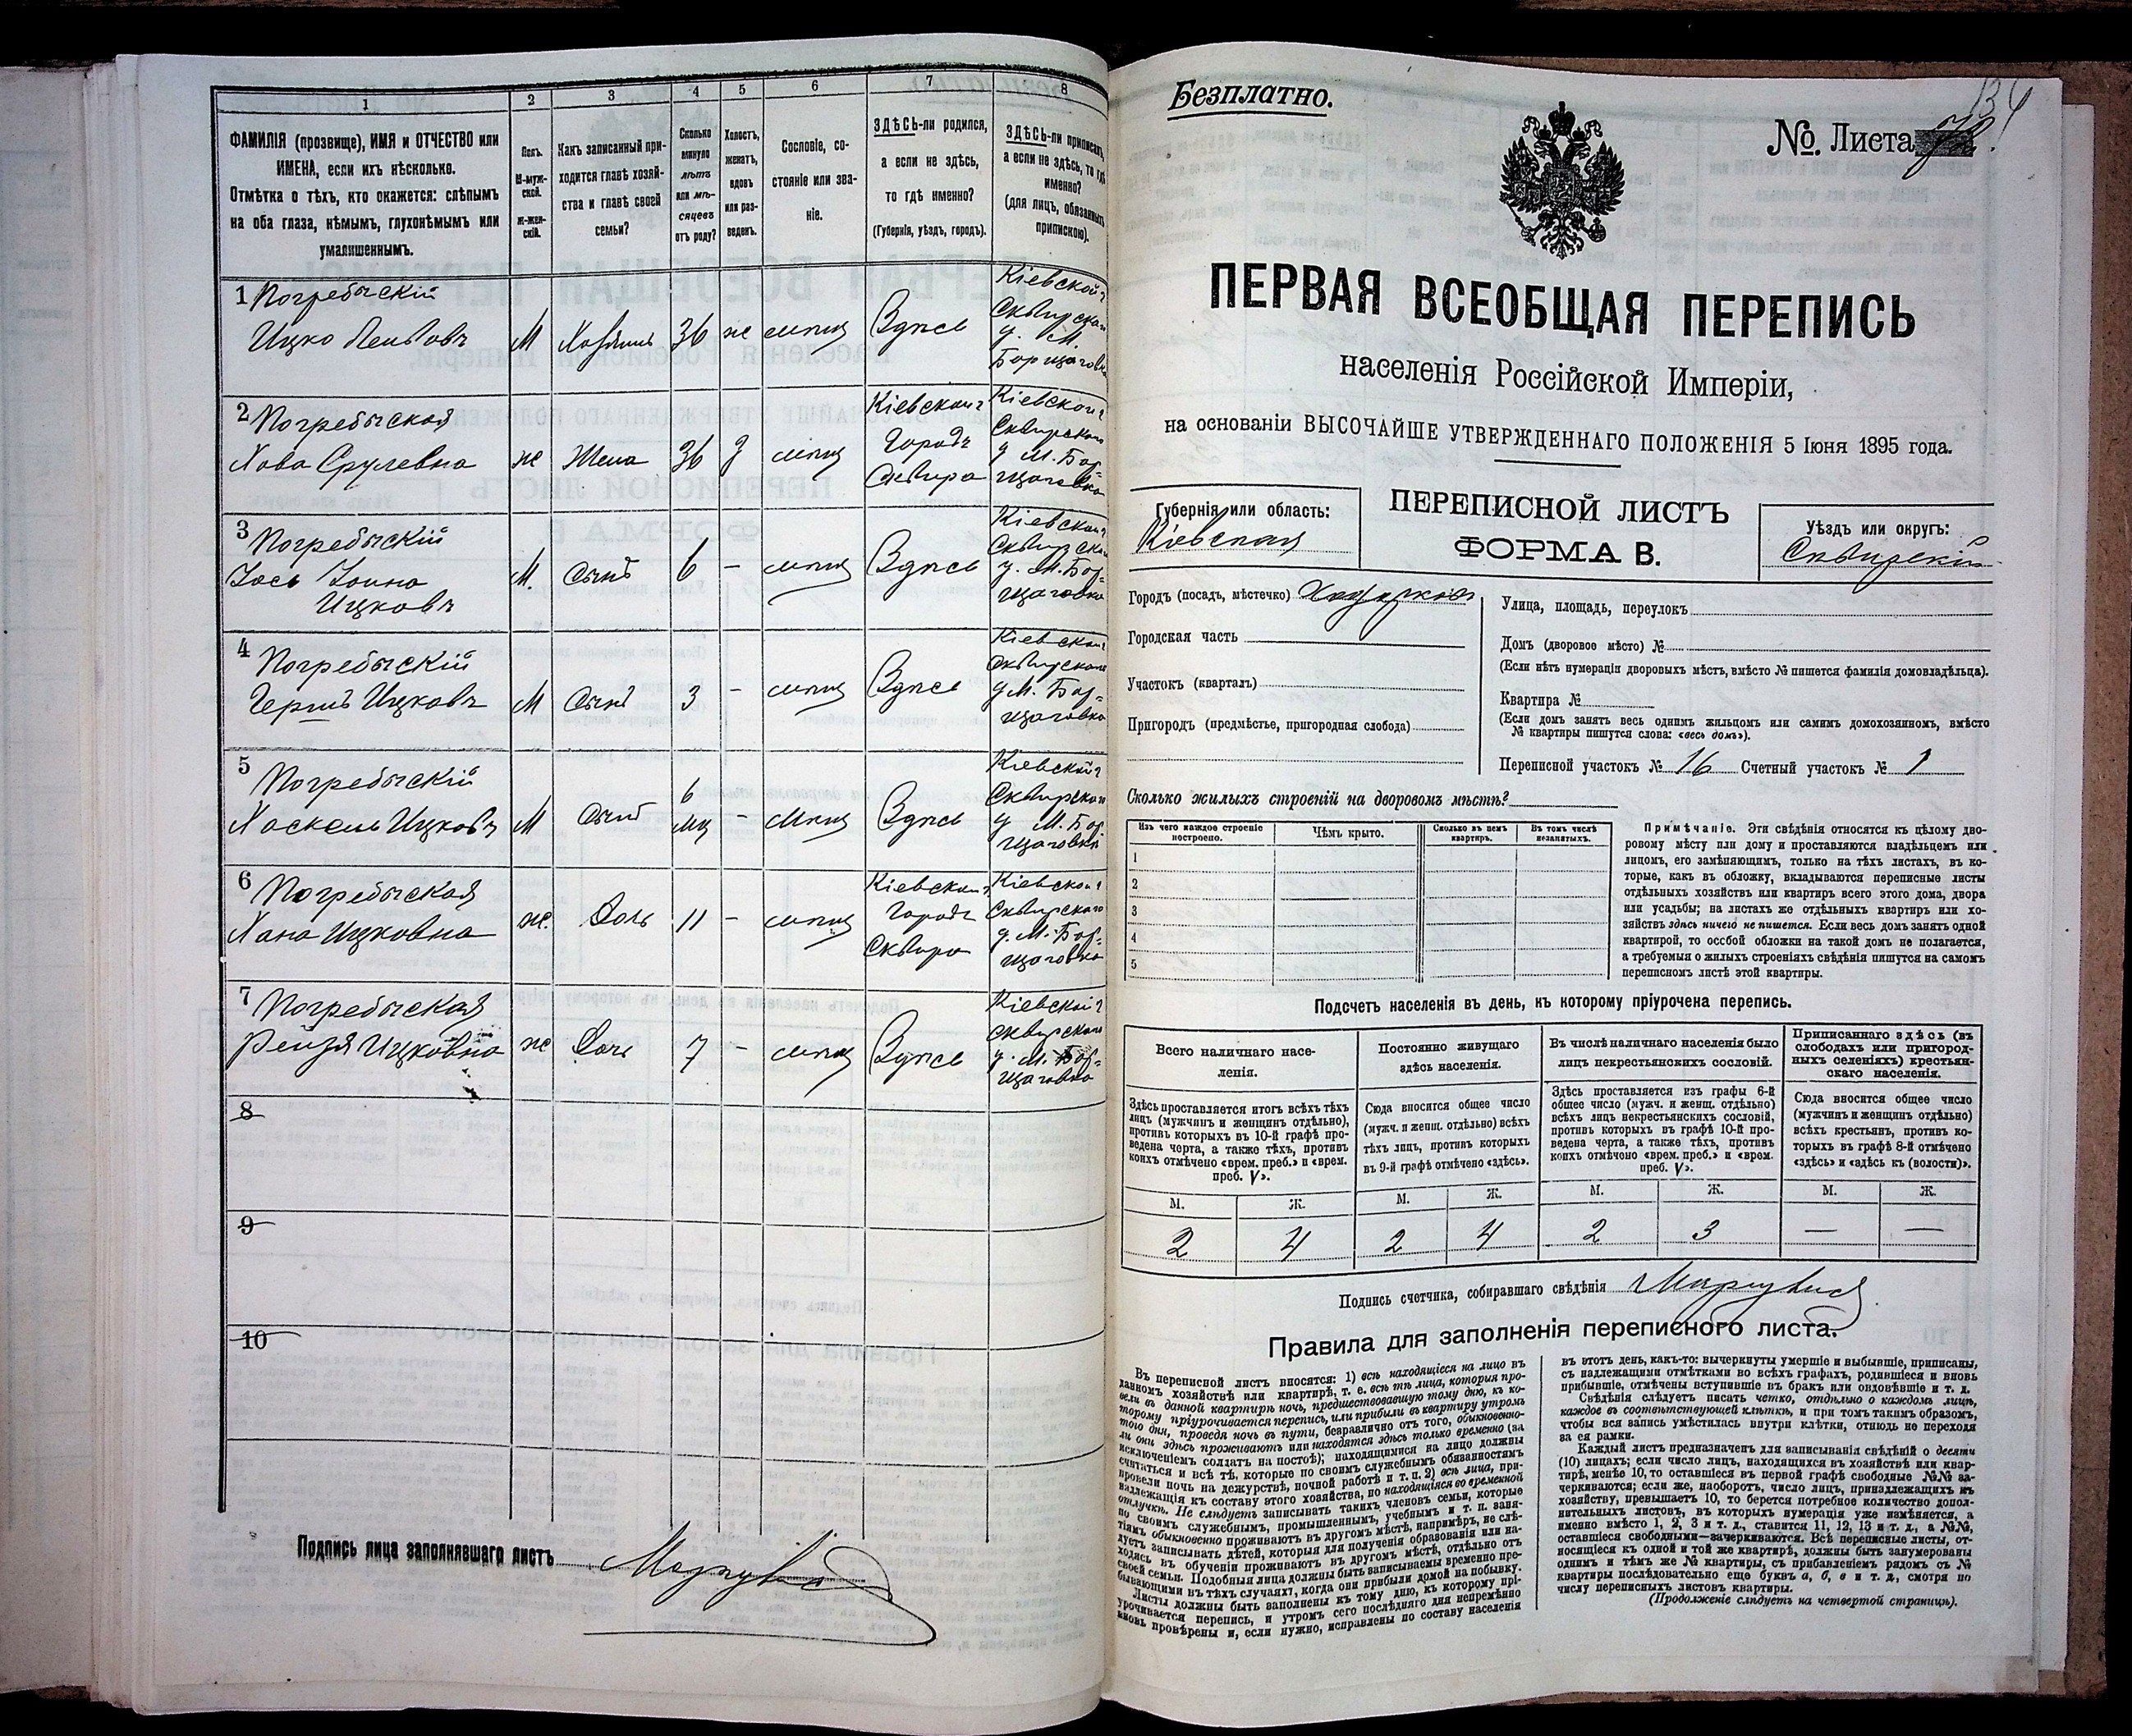 1
2
3
4
5
6
7
8
ФАМИЛІЯ (прозвище), ИМЯ и ОТЧЕСТВО или
ИМЕНА, если ихъ нѣсколько.
Отмѣтка о тѣхъ, кто окажется: слѣпымъ
на оба глаза, нѣмымъ, глухонѣмымъ или
умалишеннымъ.
Полъ.
М-муж-
ской.
Ж-жен-
скій.
Какъ записанный при-
ходится главѣ хозяй-
ства и главѣ своей
семьи?
Сколько
минуло
лѣтъ
или мѣ-
сяцевъ
отъ роду?
Холостъ,
женатъ,
вдовъ
или раз-
веденъ.
Сословіе, со-
стояніе или зва-
ніе.
ЗДѢСЬ-ли родился,
а если не здѣсь,
то гдѣ именно?
(Губернія, уѣздъ, городъ).
ЗДѢСЬ-ли приписанъ,
а если не здѣсь, то гдѣ
именно?
(для лицъ, обязанныхъ
припискою).
1 Погребыскій
Ицко
М
Хозяинъ
36
же
Здѣсь
Кіевской г
Сквирской
у. М.
Борщаговка
2 Погребыская
Хова Срулевна
же
Жена
36
З
Кіевской г
Городъ
Сквира
Кіевской г
Сквирской
у М. Бор-
щаговка
3 Погребыскій
Іось
Ицковъ
М.
Сынъ
6
-
Здѣсь
Кіевской г
Сквирской
у. М. Бор-
щаговка
4 Погребыскій
Гершъ Ицковъ
М
Сынъ
3
-
Здѣсь
Кіевской г
Сквирской
у М. Бор-
щаговка
5 Погребыскій
Хаскель Ицковъ
М
Сынъ
6
мц
-
Здѣсь
Кіевской г
Сквирской
у М. Бор-
щаговка
6 Погребыская
Хана Ицковна
же.
Дочь
11
-
Кіевской г
Городъ
Сквира
Кіевской г
Сквирской
у. М. Бор-
щаговка
7 Погребыская
Рейзя Ицковна
же
Дочь
7
-
Здѣсь
Кіевской г
Сквирской
у. М. Бор-
щаговка
8
9
10
Подпись лица заполнявшаго листъ
Безплатно.
134
№. Листа
ПЕРВАЯ ВСЕОБЩАЯ ПЕРЕПИСЬ
населенія Россійской Имперіи,
на основаніи ВЫСОЧАЙШЕ УТВЕРЖДЕННАГО ПОЛОЖЕНІЯ 5 Іюня 1895 года.
Губернія или область:
Кіевская
ПЕРЕПИСНОЙ ЛИСТЪ
ФОРМА В.
Уѣздъ или округъ:
Сквирскій
Городъ (посадъ, мѣстечко) Ходорков
Городская часть
Участокъ (кварталъ)
Пригородъ (предмѣстье, пригородная слобода)
Улица, площадь, переулокъ
Домъ (дворовое мѣсто) №
(Если нѣтъ нумераціи дворовыхъ мѣстъ, вмѣсто № пишется фамилія домовладѣльца).
Квартира №
(Если домъ занятъ весь однимъ жильцомъ или самимъ домохозяиномъ, вмѣсто
№ квартиры пишутся слова: «весь домъ»).
Переписной участокъ № 16 Счетный участокъ № 1
Сколько жилыхъ строеній на дворовомъ мѣстѣ?
Изъ чего каждое строеніе
построено.
Чѣмъ крыто.
Сколько въ немъ
квартиръ.
Въ томъ числѣ
незанятыхъ.
1
2
3
4
5
Примѣчаніе. Эти свѣдѣнія относятся къ цѣлому дво-
ровому мѣсту или дому и проставляются владѣльцемъ или
лицомъ, его замѣняющимъ, только на тѣхъ листахъ, въ ко-
торые, какъ въ обложку, вкладываются переписные листы
отдѣльныхъ хозяйствъ или квартиръ всего этого дома, двора
или усадьбы; на листахъ же отдѣльныхъ квартиръ или хо-
зяйствъ здѣсь ничего не пишется. Если весь домъ занятъ одной
квартирой, то особой обложки на такой домъ не полагается,
а требуемыя о жилыхъ строеніяхъ свѣдѣнія пишутся на самомъ
переписномъ листѣ этой квартиры.
Подсчетъ населенія въ день, къ которому пріурочена перепись.
Всего наличнаго насе-
ленія.
Постоянно живущаго
здѣсь населенія.
Въ числѣ наличнаго населенія было
лицъ некрестьянскихъ сословій.
Приписаннаго здѣсь (въ
слободахъ или пригород-
ныхъ селеніяхъ) крестьян-
скаго населенія.
Здѣсь проставляется итогъ всѣхъ тѣхъ
лицъ (мужчинъ и женщинъ отдѣльно),
противъ которыхъ въ 10-й графѣ про-
ведена черта, а также тѣхъ, противъ
коихъ отмѣчено «врем. преб.» и «врем.
преб. V».
Сюда вносится общее число
(мужч. и женщ. отдѣльно) всѣхъ
тѣхъ лицъ, противъ которыхъ
въ 9-й графѣ отмѣчено «здѣсь».
Здѣсь проставляется изъ графы 6-й
общее число (мужч. и женщ. отдѣльно)
всѣхъ лицъ некрестьянскихъ сословій,
противъ которыхъ въ графѣ 10-й про-
ведена черта, а также тѣхъ, противъ
коихъ отмѣчено «врем. преб.» и «врем.
преб. V».
Сюда вносится общее число
(мужчинъ и женщинъ отдѣльно)
всѣхъ крестьянъ, противъ ко-
торыхъ въ графѣ 8-й отмѣчено
«здѣсь» и «здѣсь къ (волости)».
М. Ж. М. Ж. М. Ж. М. Ж.
2 4 2 4 2 3 — —
Подпись счетчика, собиравшаго свѣдѣнія
Правила для заполненія переписного листа.
Въ переписной листъ вносятся: 1) всѣ находящіеся на лицо въ
данномъ хозяйствѣ или квартирѣ, т. е. всѣ тѣ лица, которыя про-
вели въ данной квартирѣ ночь, предшествовавшую тому дню, къ ко-
торому пріурочивается перепись, или прибыли въ квартиру утромъ
того дня, проведя ночь въ пути, безразлично отъ того, обыкновенно-
ли они здѣсь проживаютъ или находятся здѣсь только временно (за
исключеніемъ солдатъ на постоѣ); находящимися на лицо должны
считаться и всѣ тѣ, которые по своимъ служебнымъ обязанностямъ
провели ночь на дежурствѣ, ночной работѣ и т. п. 2) всѣ лица, при-
надлежащія къ составу этого хозяйства, но находящіяся во временной
отлучкѣ. Не слѣдуетъ записывать такихъ членовъ семьи, которые
по своимъ служебнымъ, промышленнымъ, учебнымъ и т. п. заня-
тіямъ обыкновенно проживаютъ въ другомъ мѣстѣ, напримѣръ, не слѣ-
дуетъ записывать дѣтей, которыя для полученія образованія или на-
ходясь въ обученіи проживаютъ въ другомъ мѣстѣ, отдѣльно отъ
своей семьи. Подобныя лица должны быть записываемы временно пре-
бывающими въ тѣхъ случаяхъ, когда они прибыли домой на побывку.
Листы должны быть заполнены къ тому дню, къ которому прі-
урочивается перепись, и утромъ сего послѣдняго дня непремѣнно
вновь провѣрены и, если нужно, исправлены по составу населенія
въ этотъ день, какъ-то: вычеркнуты умершіе и выбывшіе, приписаны,
съ надлежащими отмѣтками во всѣхъ графахъ, родившіеся и вновь
прибывшіе, отмѣчены вступившіе въ бракъ или овдовѣвшіе и т. д.
Свѣдѣнія слѣдуетъ писать четко, отдѣльно о каждомъ лицѣ,
каждое въ соотвѣтствующей клѣткѣ, и при томъ такимъ образомъ,
чтобы вся запись умѣстилась внутри клѣтки, отнюдь не переходя
за ея рамки.
Каждый листъ предназначенъ для записыванія свѣдѣній о десяти
(10) лицахъ; если число лицъ, находящихся въ хозяйствѣ или квар-
тирѣ, менѣе 10, то оставшіеся въ первой графѣ свободные №№ за-
черкиваются; если же, наоборотъ, число лицъ, принадлежащихъ къ
хозяйству, превышаетъ 10, то берется потребное количество допол-
нительныхъ листовъ, въ которыхъ нумерація уже измѣняется, а
именно вмѣсто 1, 2, 3 и т. д., ставится 11, 12, 13 и т. д., а №№,
оставшіеся свободными—зачеркиваются. Всѣ переписные листы, от-
носящіеся къ одной и той же квартирѣ, должны быть занумерованы
однимъ и тѣмъ же № квартиры, съ прибавленіемъ рядомъ съ №
квартиры послѣдовательно еще буквъ а, б, в и т. д., смотря по
числу переписныхъ листовъ квартиры.
(Продолженіе слѣдуетъ на четвертой страницѣ).